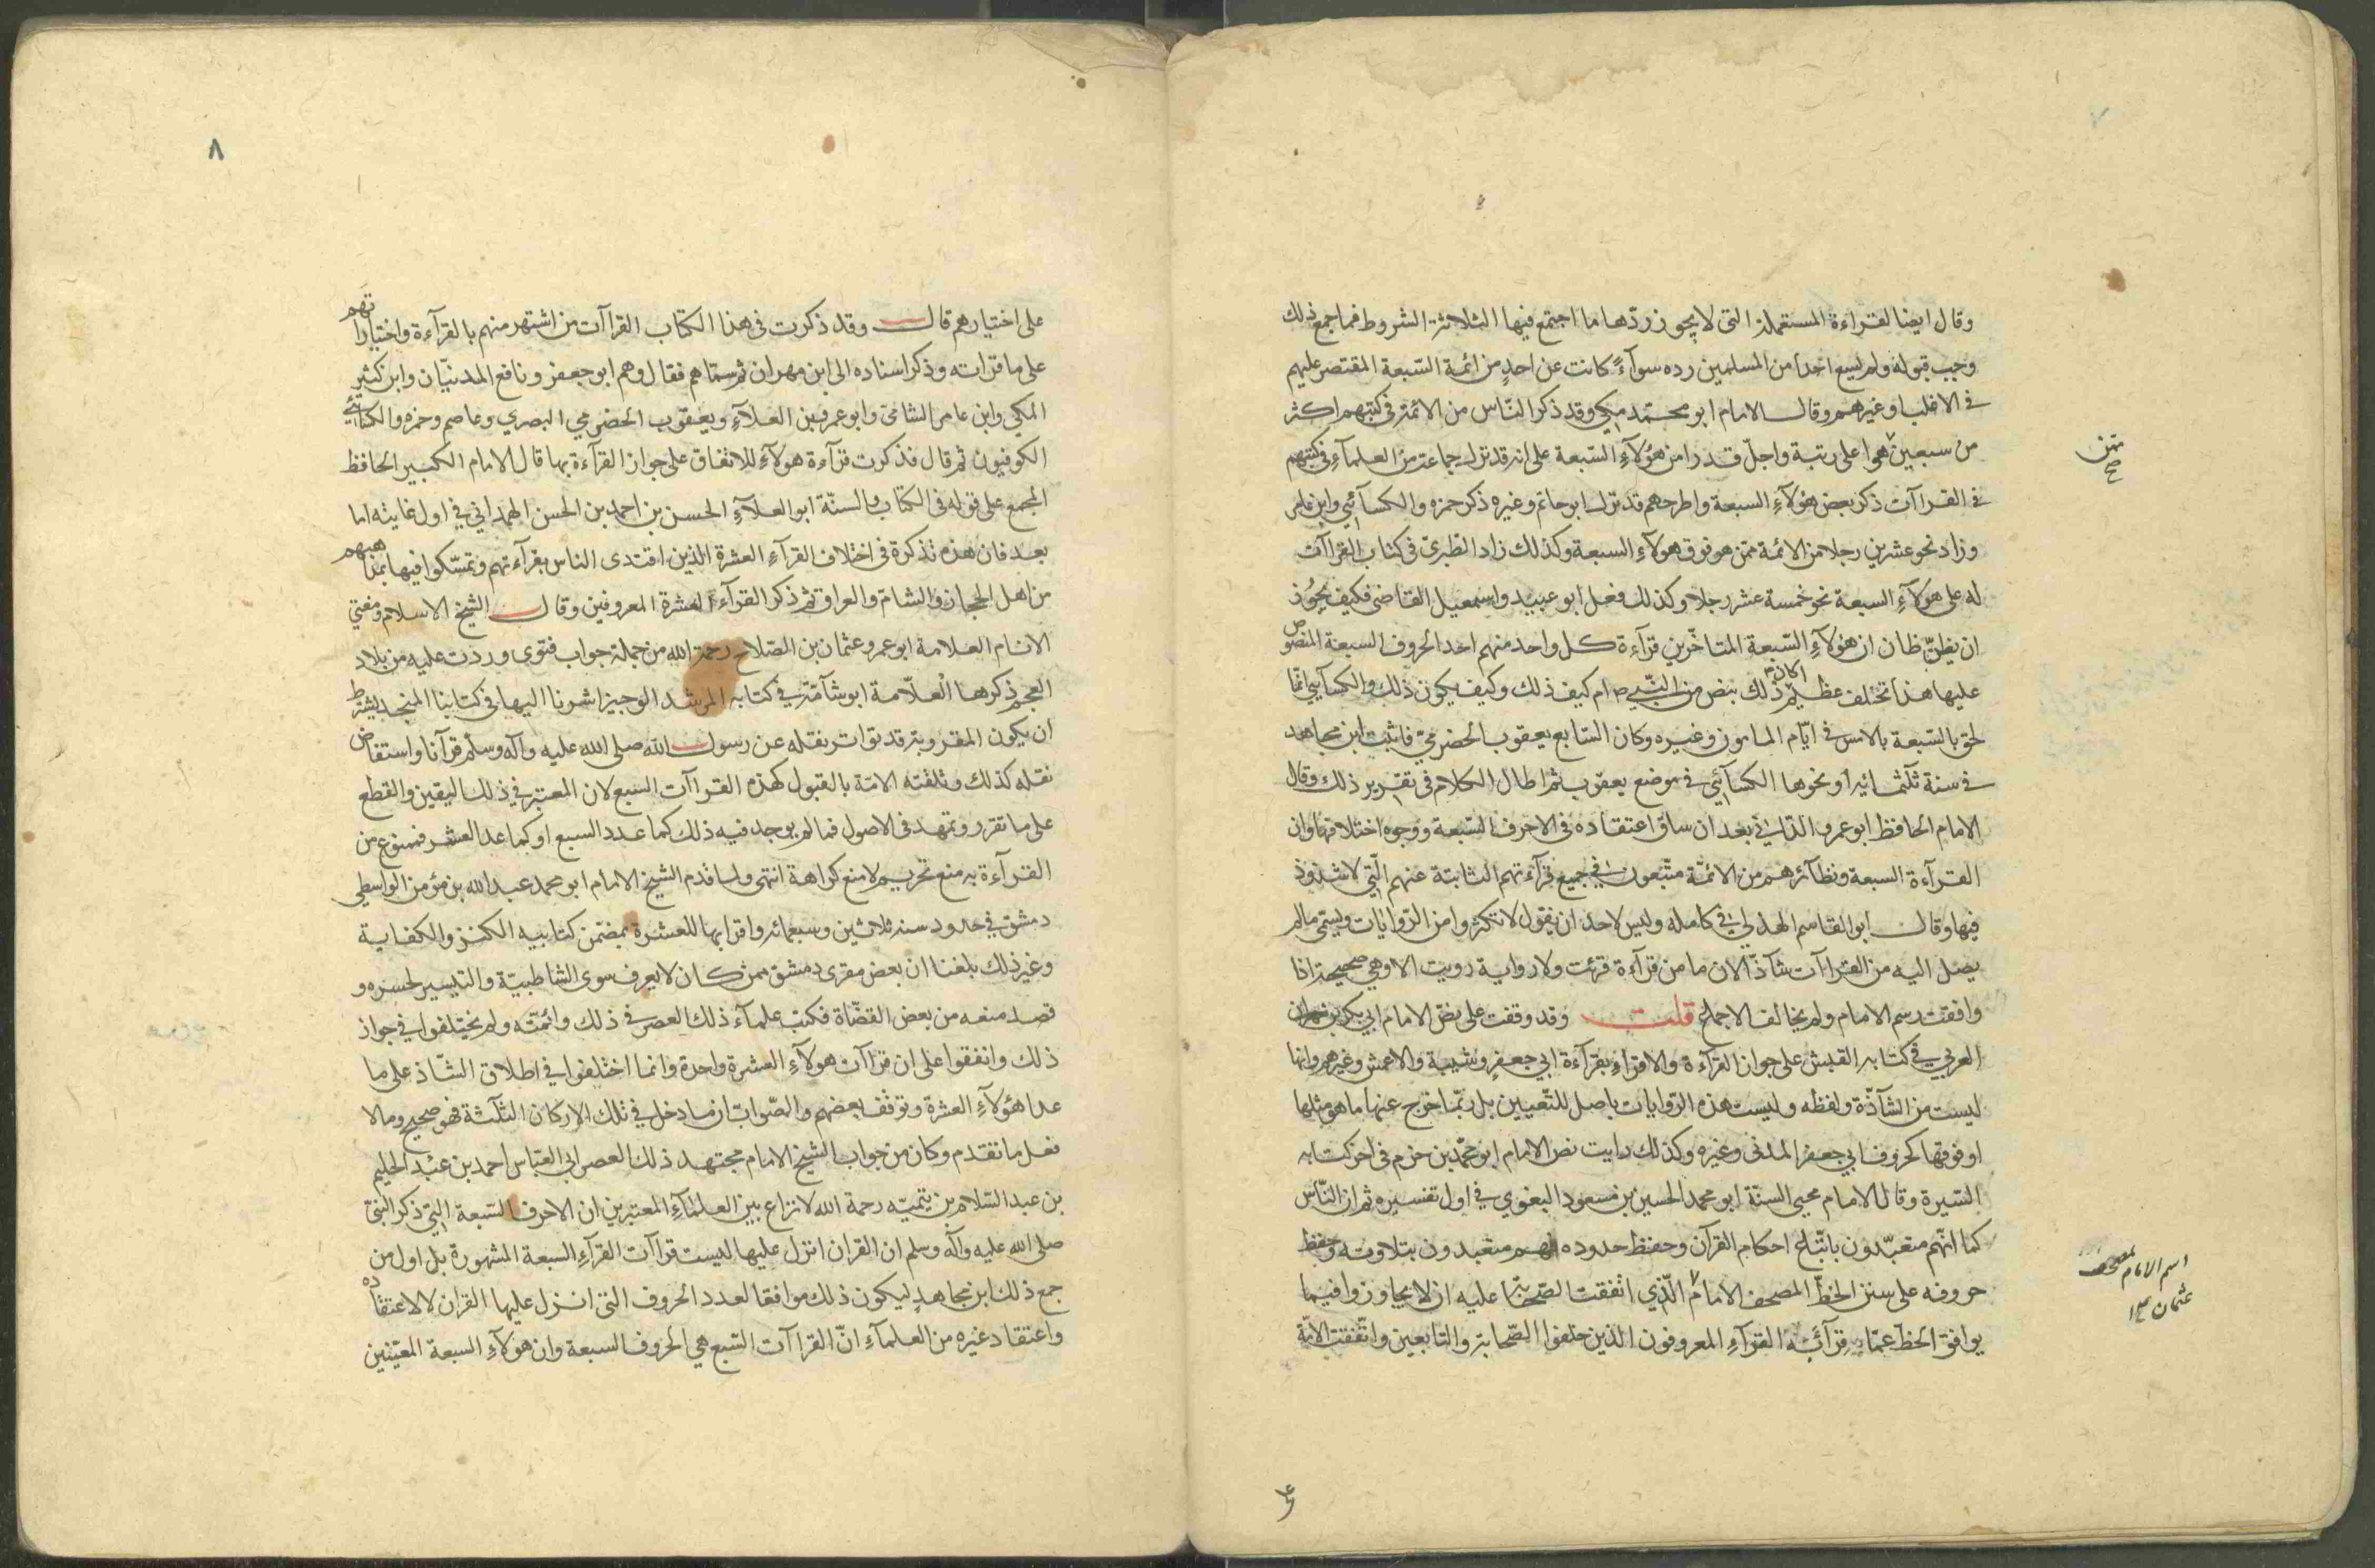 وقال ايضا لقراءة المستعملة التى لا يجوز ردّها ما اجتمع فيها الثلاثة الشروط فما جمع ذلك
وجب قبوله ولم يسع احدا من المسلمين رده سوآءً كانت عن احدٍ من ائمة السّبعة المقتصر عليهم
فى الاغلب او غيرهم وقال الامام ابو محمّد مكي وقد ذكر النّاس من الائمّة فى كتبهم اكثر
من سبعين هوا على رتبة واجلّ قدرا من هؤلآءِ السّبعة على انه قد ترك جماعة من العلمآءِ فى كتبهم
ممّن
صح
فى القراآت ذكر بعض هؤلآءِ السبعة واطرحهم قد ترك ابو حاتم وغيره ذكر حمزه والكسآئي وابن عامر
وزاد نحو عشرين رجلا من الائمة ممّن هو فوق هولآءِ السبعة وكذلك زاد الطبرىّ فى كتاب القراآت
له على هولآءِ السبعة نحو خمسة عشر رجلا وكذلك فعل ابو عبيد واسمعيل القاضى فكيف يجُوز
ان يظنّ ظان ان هؤلآءِ السّبعة المتاخّرين قرآءة كل واحد منهم احد الحروف السبعة المنصوص
عليها هذا تخلف عظيم اكان ذلك بنص من النّبي ص ام كيف ذلك وكيف يكون ذلك والكسآئي انّما
لحق بالسّبعة بالامس فى ايّام المامون وغيره وكان السّابع يعقوب الحضرميّ فاثبت ابن مجاهد
فى سنة ثلثمائة او نحوها الكسآئي فى موضع يعقوب ثم اطال الكلام فى تقرير ذلك وقال
الامام الحافظ ابو عمرو الدّاني بعد ان ساق اعتقاده فى الاحرف السّبعة ووجوه اختلافها وان
القرآءة السبعة ونظآئرهم من الائمّة متّبعون فى جميع قرآءتهم الثابتة عنهم الّتي لا شذوذ
فيها وقال ابو القاسم الهذلي فى كامله وليس لاحد ان يقول لا تكثروا من الرّوايات ويسمّى مالم
يصل اليه من القراآت شآذّا لان ما من قرآءة قرئت ولا رواية رويت الا وهي صحيحة اذا
وافقت رسم الامام ولم يخالف الاجماع قلت وقد وقفت على نصّ الامام ابي بكر بن
العربي فى كتابه القبس على جواز القرآءة والاقراءِ بقرآءة ابي جعفرٍ وشيبة والاعمش وغيرهم وانها
ليست من الشآذّة ولفظه وليست هذه الرّوايات باصل للتّعيين بل ربّما خرج عنها ما هو مثلها
او فوقها كحروف ابي جعفر المدنى وغيره وكذلك رايت نص الامام ابو محمّد بن حزم فى اخر كتابه
السّيرة وقال الامام محيي السنّة ابو محمد الحسين بن مسعود البغوي فى اول تفسيره ثم ان النّاس
كما انّهم متعبّدون باتّباع احكام القرآن وحفظ حدوده فهم متعبدون بتلاوته وحفظ
حروفه على سنن الخطّ المصحف الامام الّذي اتفقت الصّحابة عليه ان لا يجاوزوا فيما
اسم الامام لمصحف
عثمان
يوافق الخطّ عمّا قرأ به القرآءِ المعروفون الذين خلفوا الصّحابة والتابعين واتّفقت الامّة
٨
على اختيارهم قال وقد ذكرت فى هذا الكتاب القراآت من اشتهر منهم بالقرآءة واختياراتهم
على ما قراته وذكر اسناده الى ابن مهران ثم سمّاهم فقال وهم ابو جعفر ونافع المدنيّان وابن كثير
المكي وابن عامر الشامىّ وابو عمرو بن العلآءِ ويعقوب الحضرمي البصري وعاصم وحمزه والكسائي
الكوفيون ثم قال فذكرت قرآءة هولآءِ للاتفاق على جواز القرآءة بها قال الامام الكبير الحافظ
المجمع على قوله فى الكتاب والسنّة ابو العلآءِ الحسن بن احمد بن الحسن الهمداني فى اول غايته اما
بعد فان هذه تذكرة فى اختلاف القرآءِ العشرة الذين اقتدى الناس بقرآءتهم وتمسّكوا فيها بمذاهبهم
من اهل الحجاز والشام والعراق ثم ذكر القرآء العشرة المعروفين وقال الشيخ الاسلام ومفتي
الانام العلامة ابو عمرو عثمان بن الصّلاح رحمة الله من جملة جواب فتوى وردت عليه من بلاد
العجم ذكرها الْعلّامة ابو شآمة فى كتابه المرشد الوجيز اشرنا اليها فى كتابنا المنجد يشترط
ان يكون المقرو به قد تواتر نقله عن رسول الله صلى الله عليه وآله وسلم قرآنا واستفاض
نقله كذلك وتلقته الامّة بالقبول كهذه القراآت السبع لان المعتبر في ذلك اليقين والقطع
على ما تقرر وتمهد فى الاصول فمالم يوجد فيه ذلك كما عدد السبع او كما عدا العشر فممنوع من
القرآءة به منع تحريم لا منع كراهة انتهى ولما قدم الشيخ الامام ابو محمد عبد الله بن مؤمن الواسطي
دمشق فى حدود سنه ثلاثين وسبعمائه واقرا بها للعشرة بمضمّن كتابيه الكنز والكفاية
وغير ذلك بلغنا ان بعض مقرى دمشق ممن كان لا يعرف سوى الشاطبيّة والتيسير لحسده و
قصد منعه من بعض القضّاة فكتب علمآء ذلك العصر فى ذلك وائمّته ولم يختلفوا فى جواز
ذلك واتفقوا على ان قراآت هولآءِ العشرة واحدة وانما اختلفوا فى اطلاق الشّاذ على ما
عدا هؤلآءِ العشرة وتوقف بعضهم والصّواب ان ما دخل فى تلك الاركان الثلثة فهو صحيح وما لا
فعل ما تقدم وكان من جواب الشيخ الامام مجتهد ذلك العصر ابي العبّاس احمد بن عبْد الحليم
بن عبد السّلام بن تيميّه رحمة الله لا نزاع بين العلمآءِ المعتبرين ان الاحرف السّبعة التي ذكر النبىّ
صلى الله عليه وآله وسلم ان القران انزل عليها ليست قراآت القرآءِ السبعة المشهورة بل اول من
جمع ذلك ابن مجاهدٍ ليكون ذلك موافقا لعدد الحروف التى انزل عليها القران لا لاعتقاده
واعتقاد غيره من العلمآءِ انّ القراآت السّبع هي الحروف السبعة وان هؤلآءِ السبعة المعيّنين